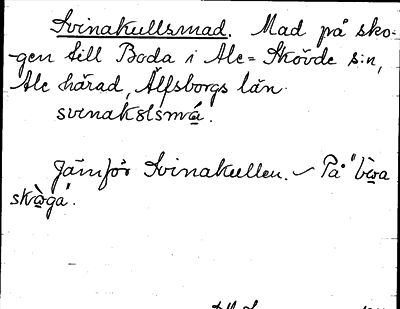 Svinakullsmad. Mad på sko-
gen till Boda i Ale-Skövde s:n,
Ale härad, Älfsborgs län.
svinakslsmá.
Jämför Svinakullen. – På "bèra
skòga".